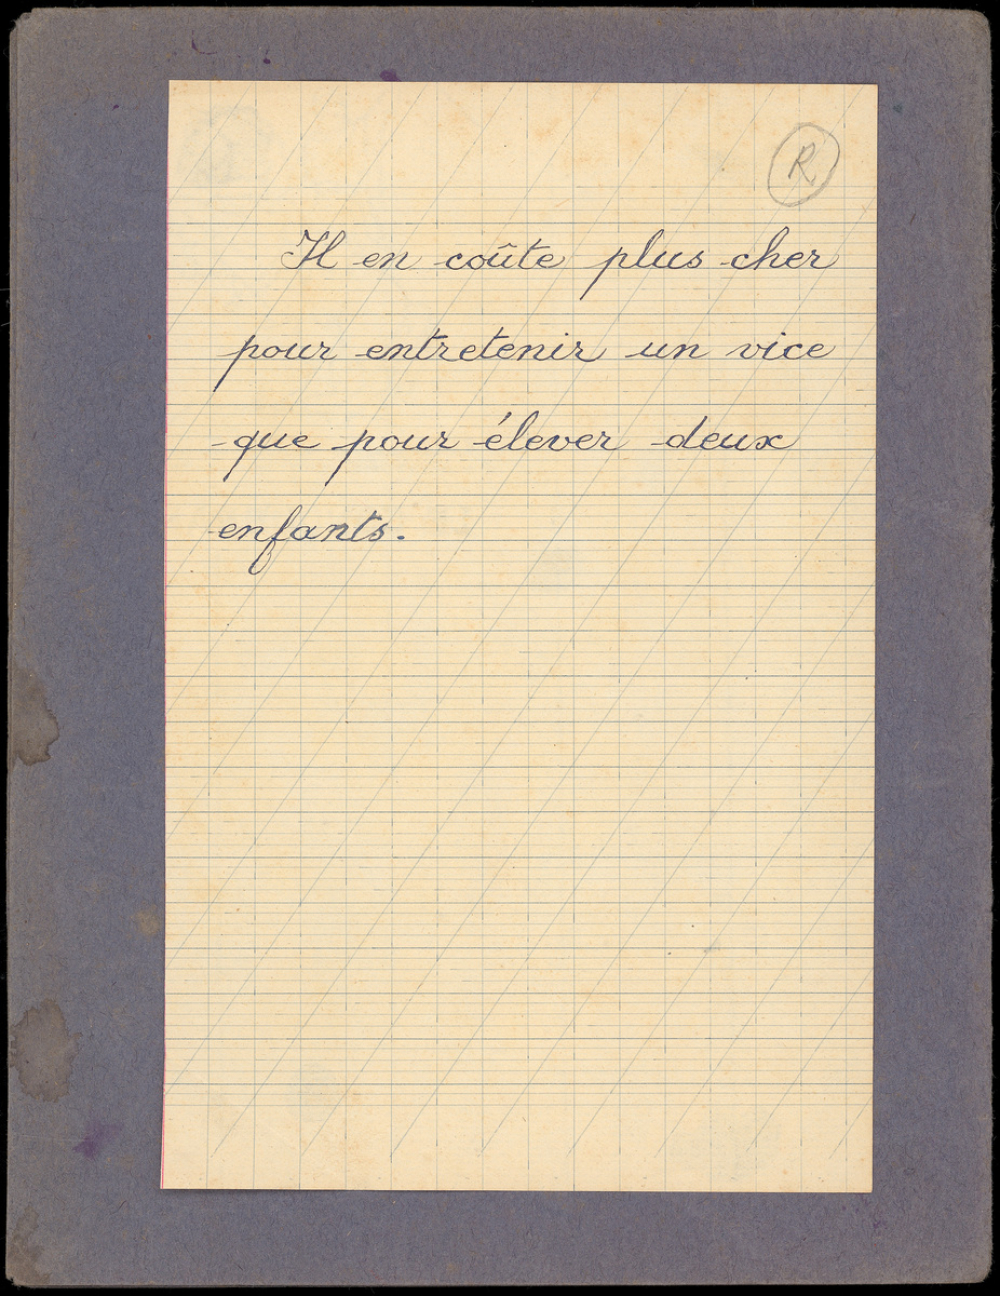 R
Il en coûte plus cher
pour entretenir un vice
que pour élever deux
enfants.